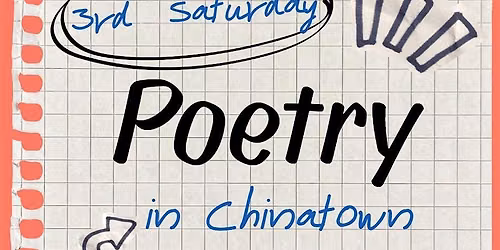 3rd Saturday
Poetry
in Chinatown